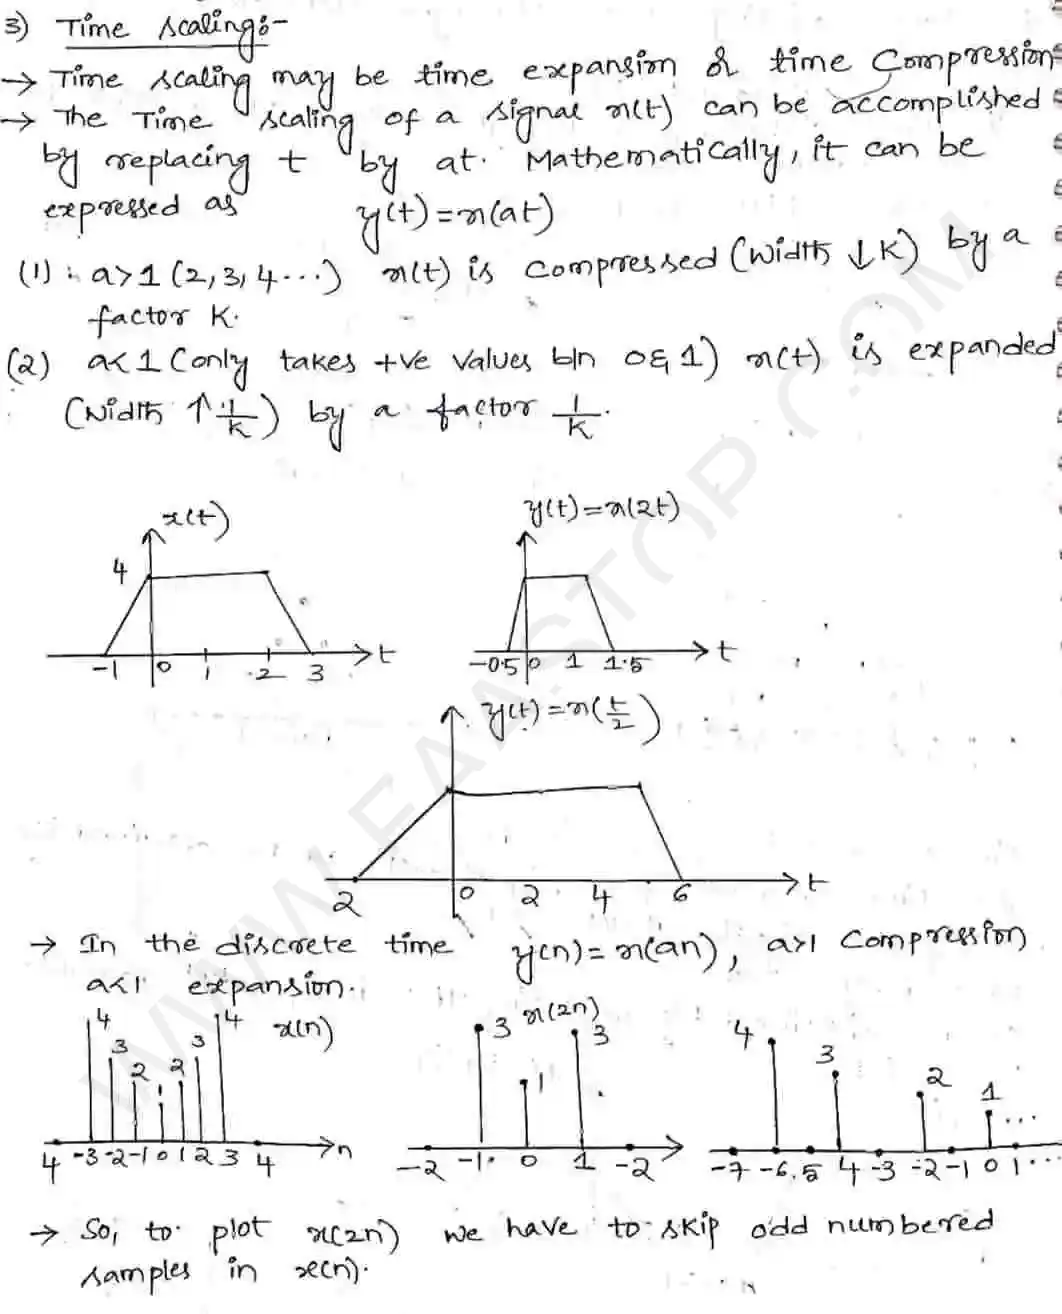 3) Time scaling:-
→ Time scaling may be time expansion or time Compression
→ The Time scaling of a signal x(t) can be accomplished
by replacing t by at. Mathematically, it can be
expressed as y(t)=x(at)
(1) : a>1 (2,3,4...) x(t) is compressed (width ↓K) by a
factor K.
(2) a<1 (only takes +ve values b/n 0 & 1) x(t) is expanded
(width ↑ 1/K) by a factor 1/K.
x(t)
4
-1 0 1 2 3 t
y(t)=x(2t)
-0.5 0 1 1.5 t
y(t)=x(t/2)
2 0 2 4 6 t
→ In the discrete time y(n)=x(an), a>1 Compression
a<1 expansion.
4 3 2 1 2 3 4 x(n)
4 -3 -2 -1 0 1 2 3 4 n
3 x(2n) 3
1
-2 -1 0 1 -2
4 3 2 1 ...
-7 -6 .5 4 -3 -2 -1 0 1 ...
→ So, to plot x(2n) we have to skip odd numbered
samples in x(n).
WWW.EAASTOPC.COM